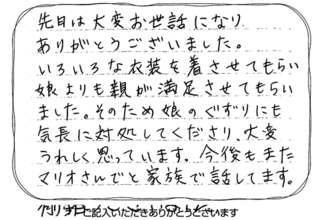 先日は大変お世話になり
ありがとうございました。
いろいろな衣装を着させてもらい
娘よりも親が満足させてもらい
ました。そのため娘のぐずりにも
気長に対処してくださり、大変
うれしく思っています。今後もまた
マリオさんでと家族で話してます。
ご記入いただきありがとうございます